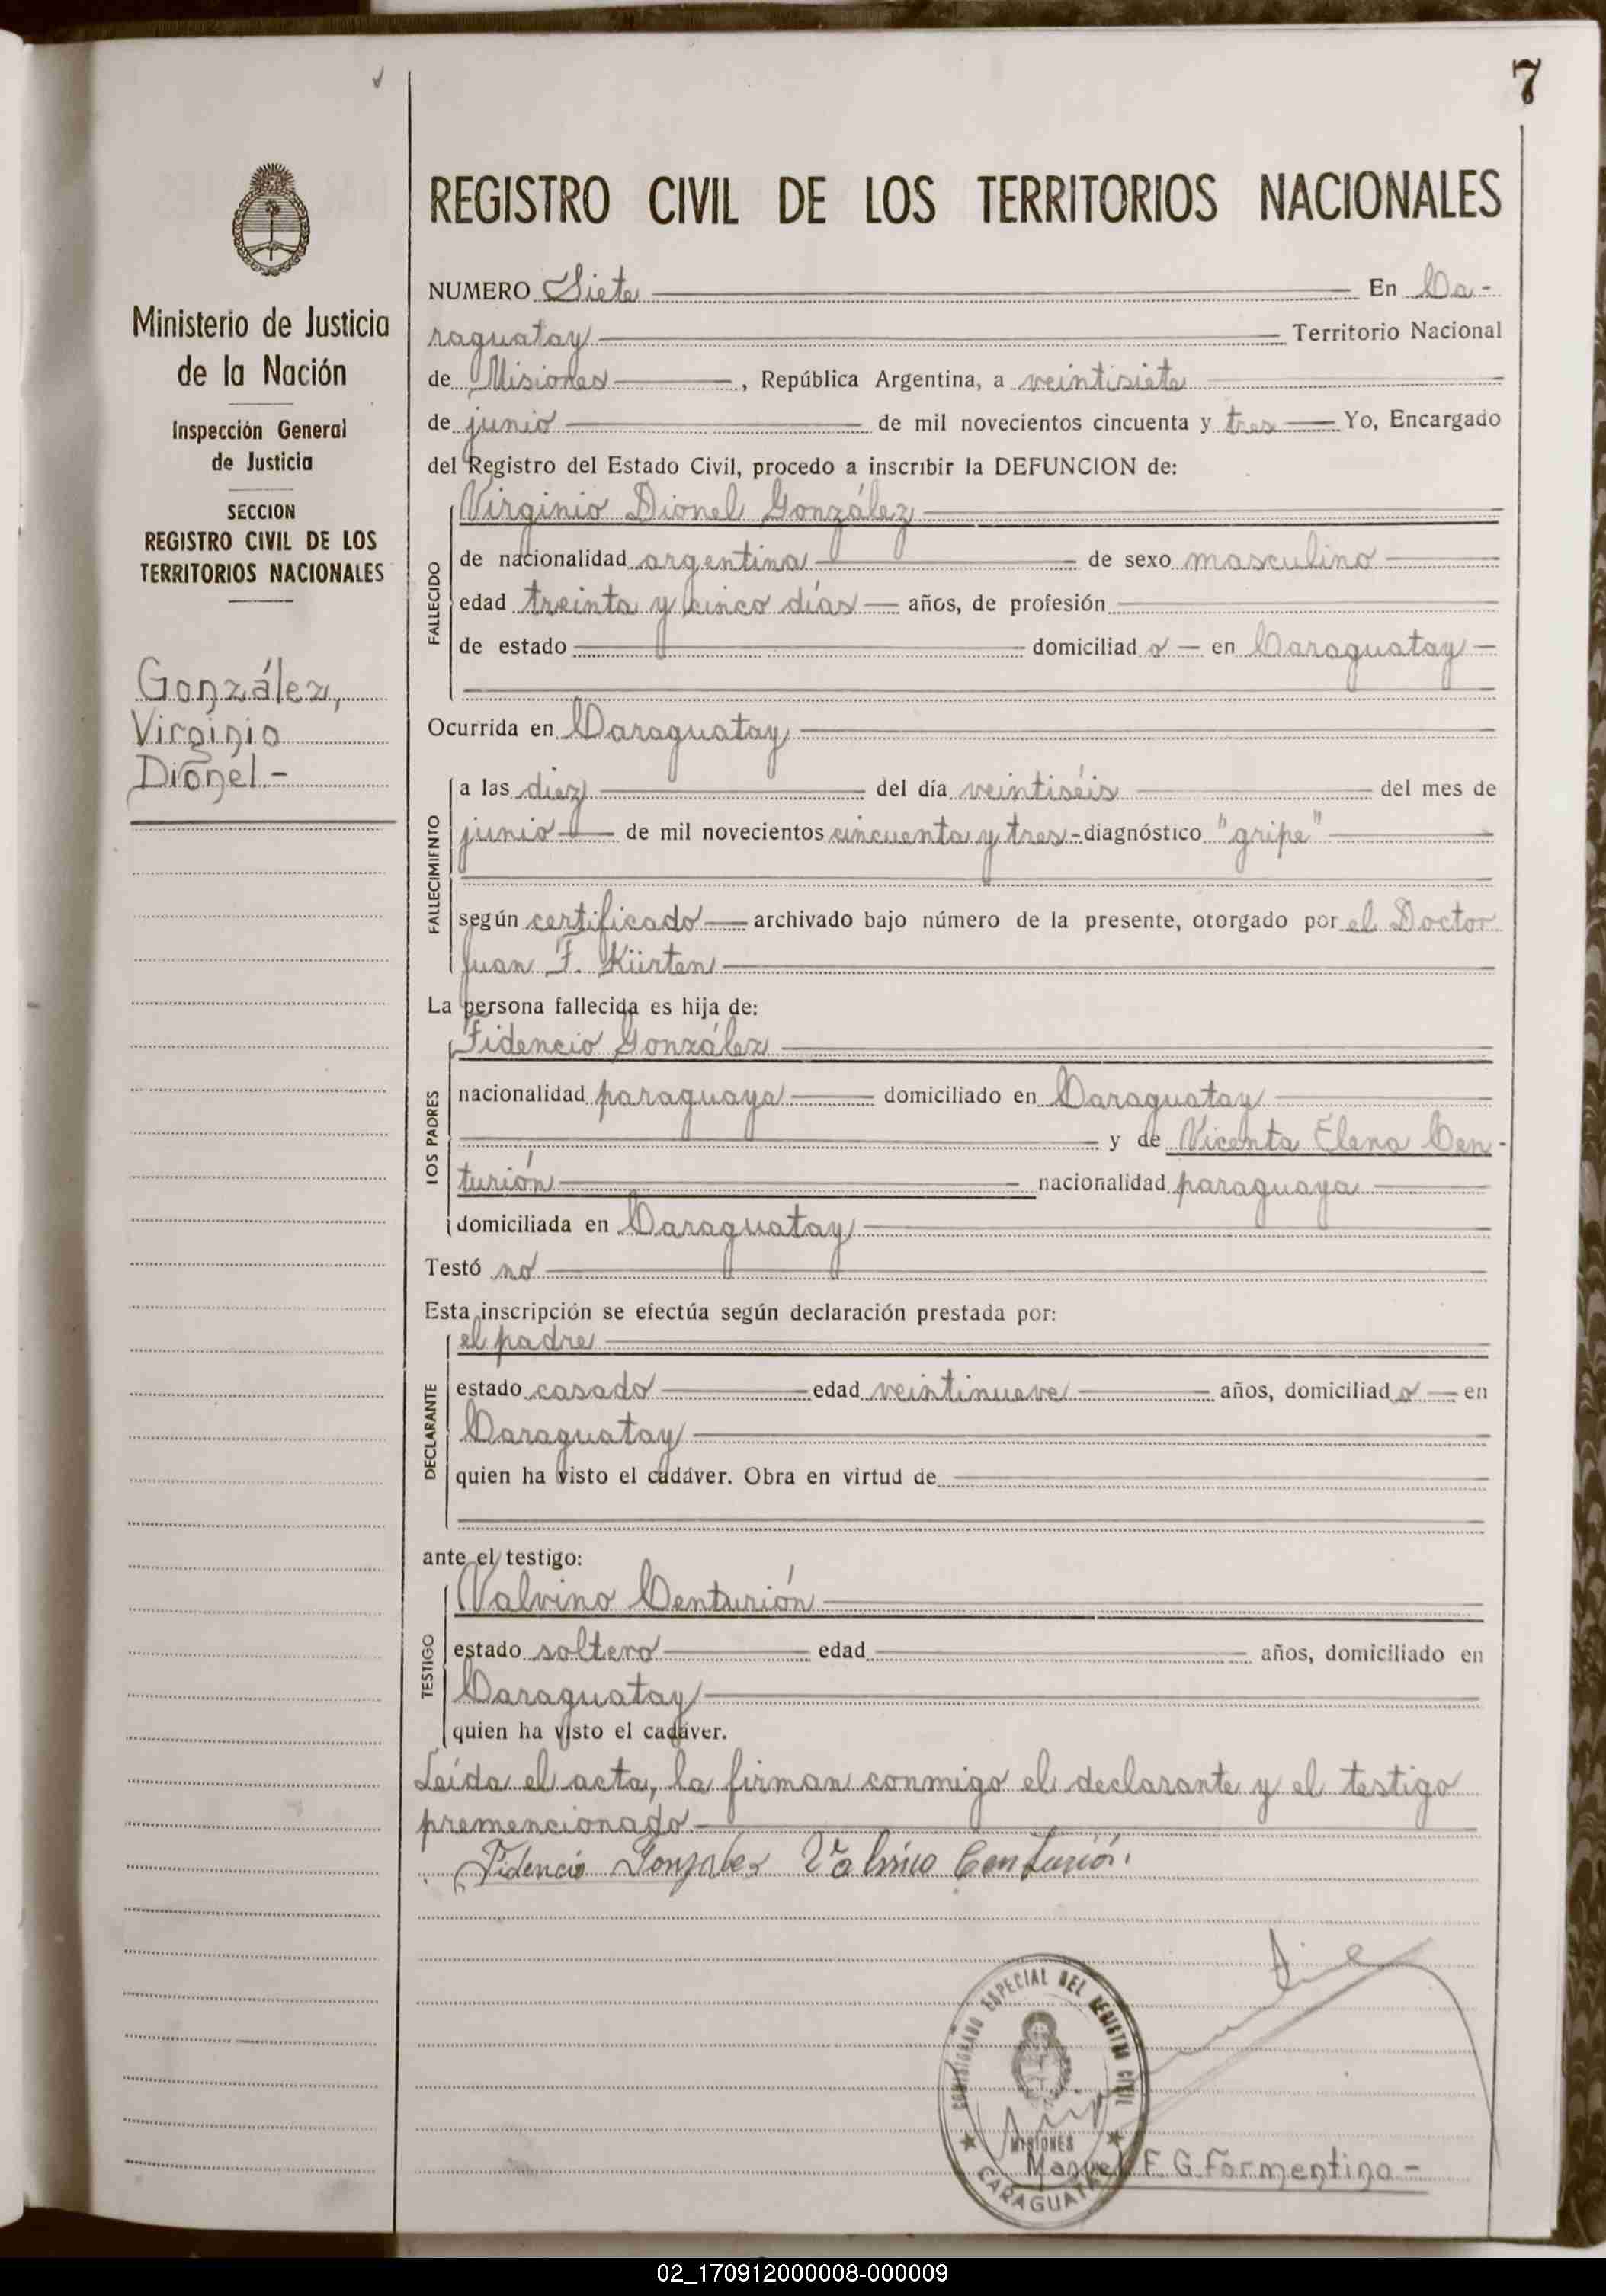 7
REGISTRO CIVIL DE LOS TERRITORIOS NACIONALES
Ministerio de Justicia
de la Nación
Inspección General
de Justicia
SECCION
REGISTRO CIVIL DE LOS
TERRITORIOS NACIONALES
González,
Virginio
Dionel.-
NUMERO Siete En Ca-
raguatay Territorio Nacional
de Misiones, República Argentina, a veintisiete
de junio de mil novecientos cincuenta y tres Yo, Encargado
del Registro del Estado Civil, procedo a inscribir la DEFUNCION de:
FALLECIDO
Virginio Dionel González
de nacionalidad argentina de sexo masculino
edad treinta y cinco días años, de profesión
de estado domiciliad o en Caraguatay
Ocurrida en Caraguatay
FALLECIMIENTO
a las diez del día veintiséis del mes de
junio de mil novecientos cincuenta y tres - diagnóstico "gripe"
según certificado archivado bajo número de la presente, otorgado por el Doctor
Juan F. Kürten
La persona fallecida es hija de:
LOS PADRES
Fidencio González
nacionalidad paraguaya domiciliado en Caraguatay
y de Vicenta Elena Cen-
turión nacionalidad paraguaya
domiciliada en Caraguatay
Testó no
Esta inscripción se efectúa según declaración prestada por:
DECLARANTE
el padre
estado casado edad veintinueve años, domiciliad o en
Caraguatay
quien ha visto el cadáver. Obra en virtud de
ante el testigo:
TESTIGO
Valvino Centurión
estado soltero edad años, domiciliado en
Caraguatay
quien ha visto el cadáver.
Leída el acta, la firman conmigo el declarante y el testigo
premencionado
Fidencio Gonzalez Valvino Centurión.
ESPECIAL DEL REGISTRO CIVIL
MISIONES
CARAGUATAY
Manuel F. G. Formentino -
02_170912000008-000009